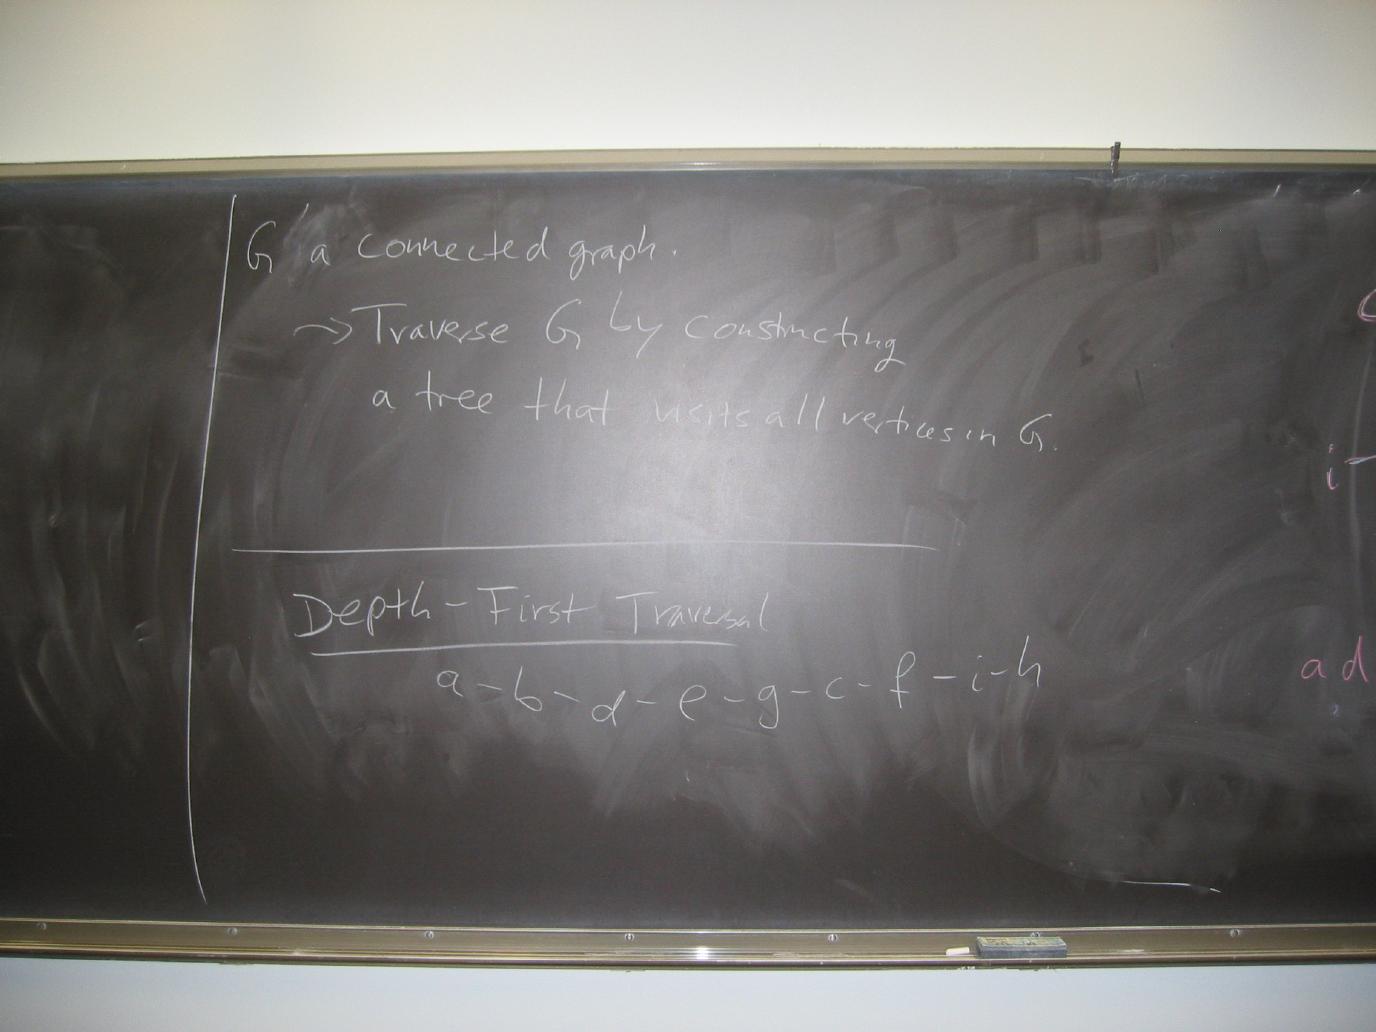 G a connected graph.
→ Traverse G by constructing
a tree that visits all vertices in G.
Depth-First Traversal
a-b-d-e-g-c-f-i-h
i
ad